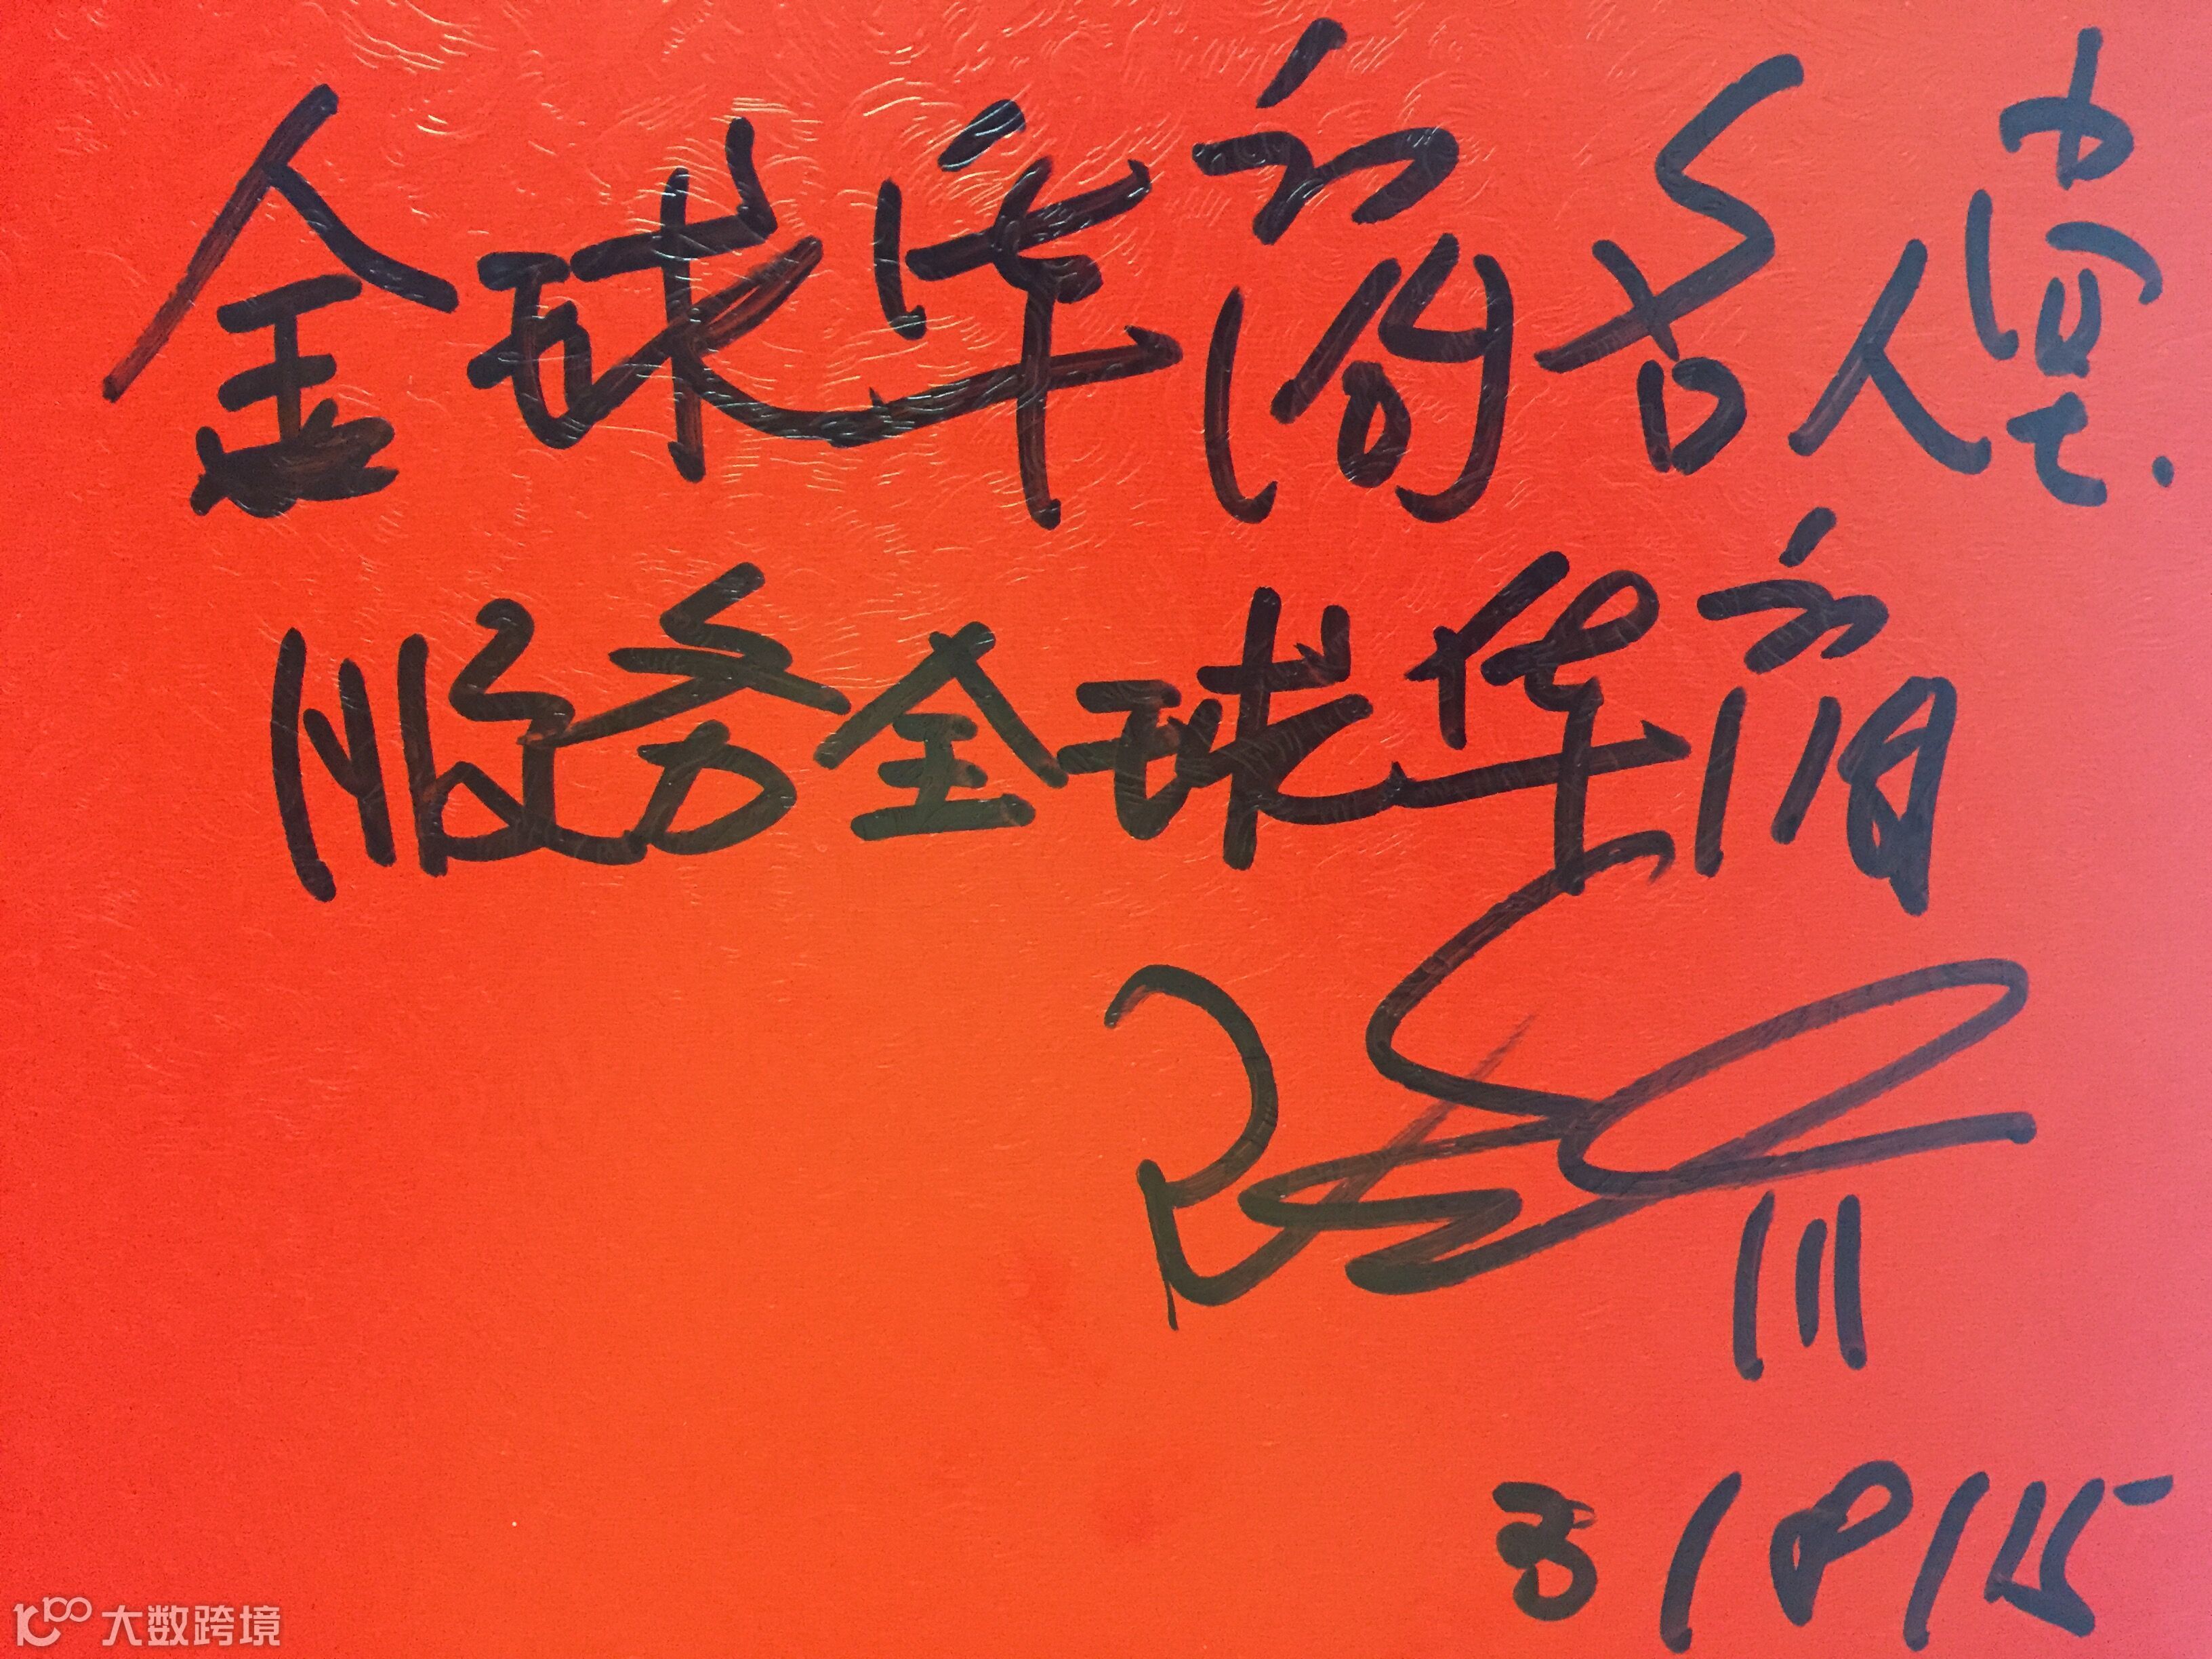 全球华商名人堂.
服务全球华商
3/8/15
大数跨境